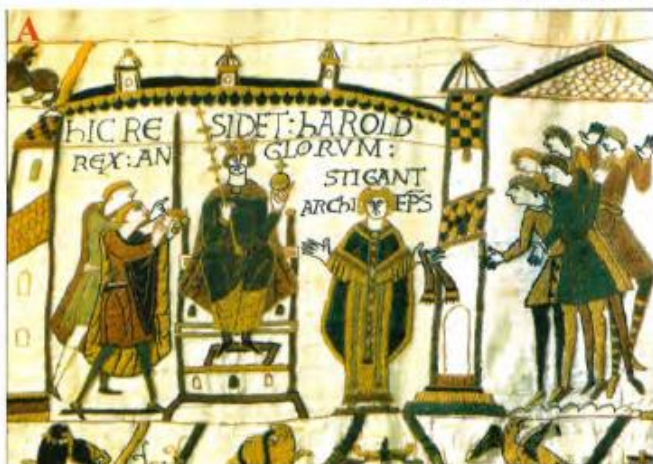 A
hIC RE SIDET : hAROLD
REX : AN GLORVM :
STIGANT
ARCHI EP̅S